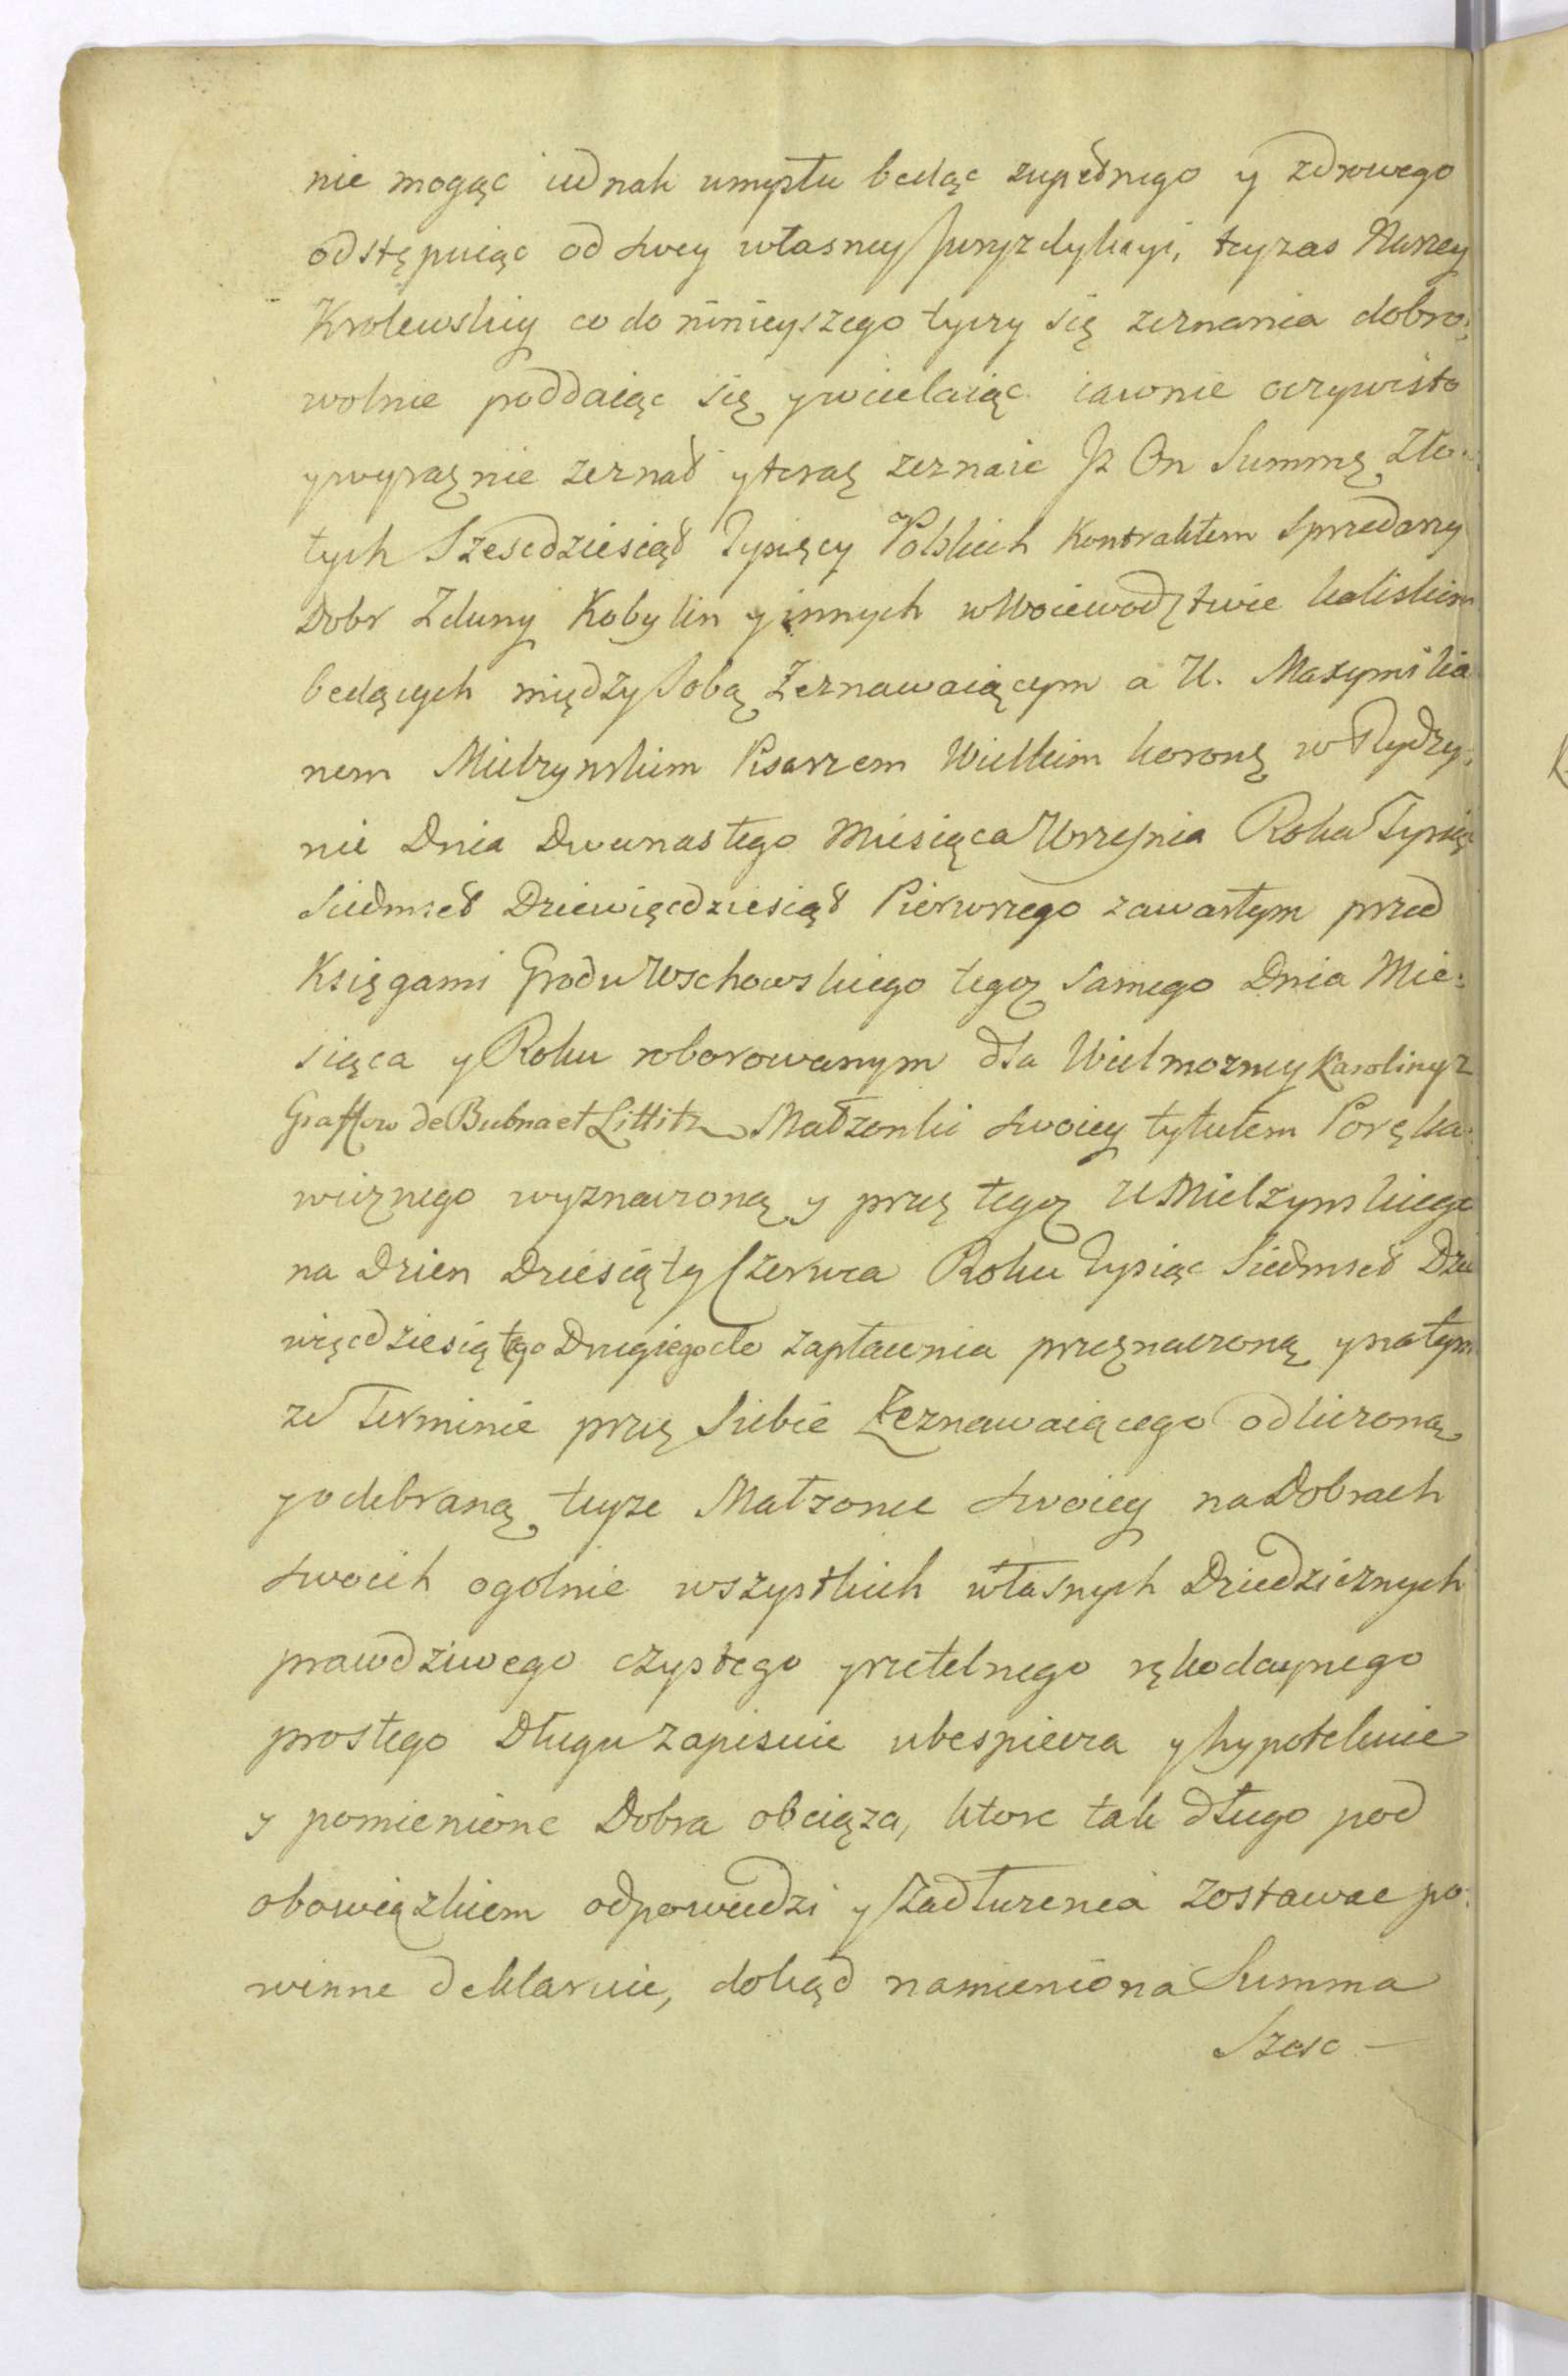 nie mogąc iednak umysłu będąc zupełnego y zdrowego
odstępuiąc od swey własney Juryzdykcyi, teyzas Naszey
Krolewskiey co do ninieyszego tyczy się zeznania dobro:
wolnie poddaiąc się y wcielaiąc iawnie oczywisto
y wyraznie zeznał y teraz zeznaie Jż On Summę Zło:
tych Szescdziesiąt Tysięcy Polskich Kontraktem Sprzedazy
Dobr Zduny Kobylin y innych w Woiewodztwie kaliskim
będących między Sobą Zeznawaiącym a U. Maxymilia
nem Mielzynskim Pisarzem Wielkim koronę w Rydzy:
nie Dnia Dwunastego Miesiąca Wrzesnia Roku Tysiąc
Siedmset Dziewięcdziesiąt Pierwszego zawartym przed
Księgami Grodu Wschowskiego tegoz Samego Dnia Mie:
siąca y Roku roborowanym dla Wielmozney Karoliny z
Graffow de Bubna et Littitz Małzonki swoiey tytułem Poręka:
wicznego wyznaczoną y przez tegoz U Mielzynskiego
na Dzien Dziesiąty Czerwca Roku Tysiąc Siedmset Dzie
więcdziesiątego Drugiego do zapłacenia przeznaczoną y na tym
ze Terminie przez Siebie Zeznawaiącego odliczoną
y odebraną teyze Małzonce swoiey na Dobrach
swoich ogolnie wszystkich własnych Dziedzicznych
prawdziwego czystego y rzetelnego rękodaynego
prostego Długu zapisuie ubespiecza y hypotekuie
y pomienione Dobra obciąza, ktore tak długo pod
obowiązkiem odpowiedzi y Zadłuzenia zostawac po:
winne deklaruie, dokąd namieniona Summa
Szesc —